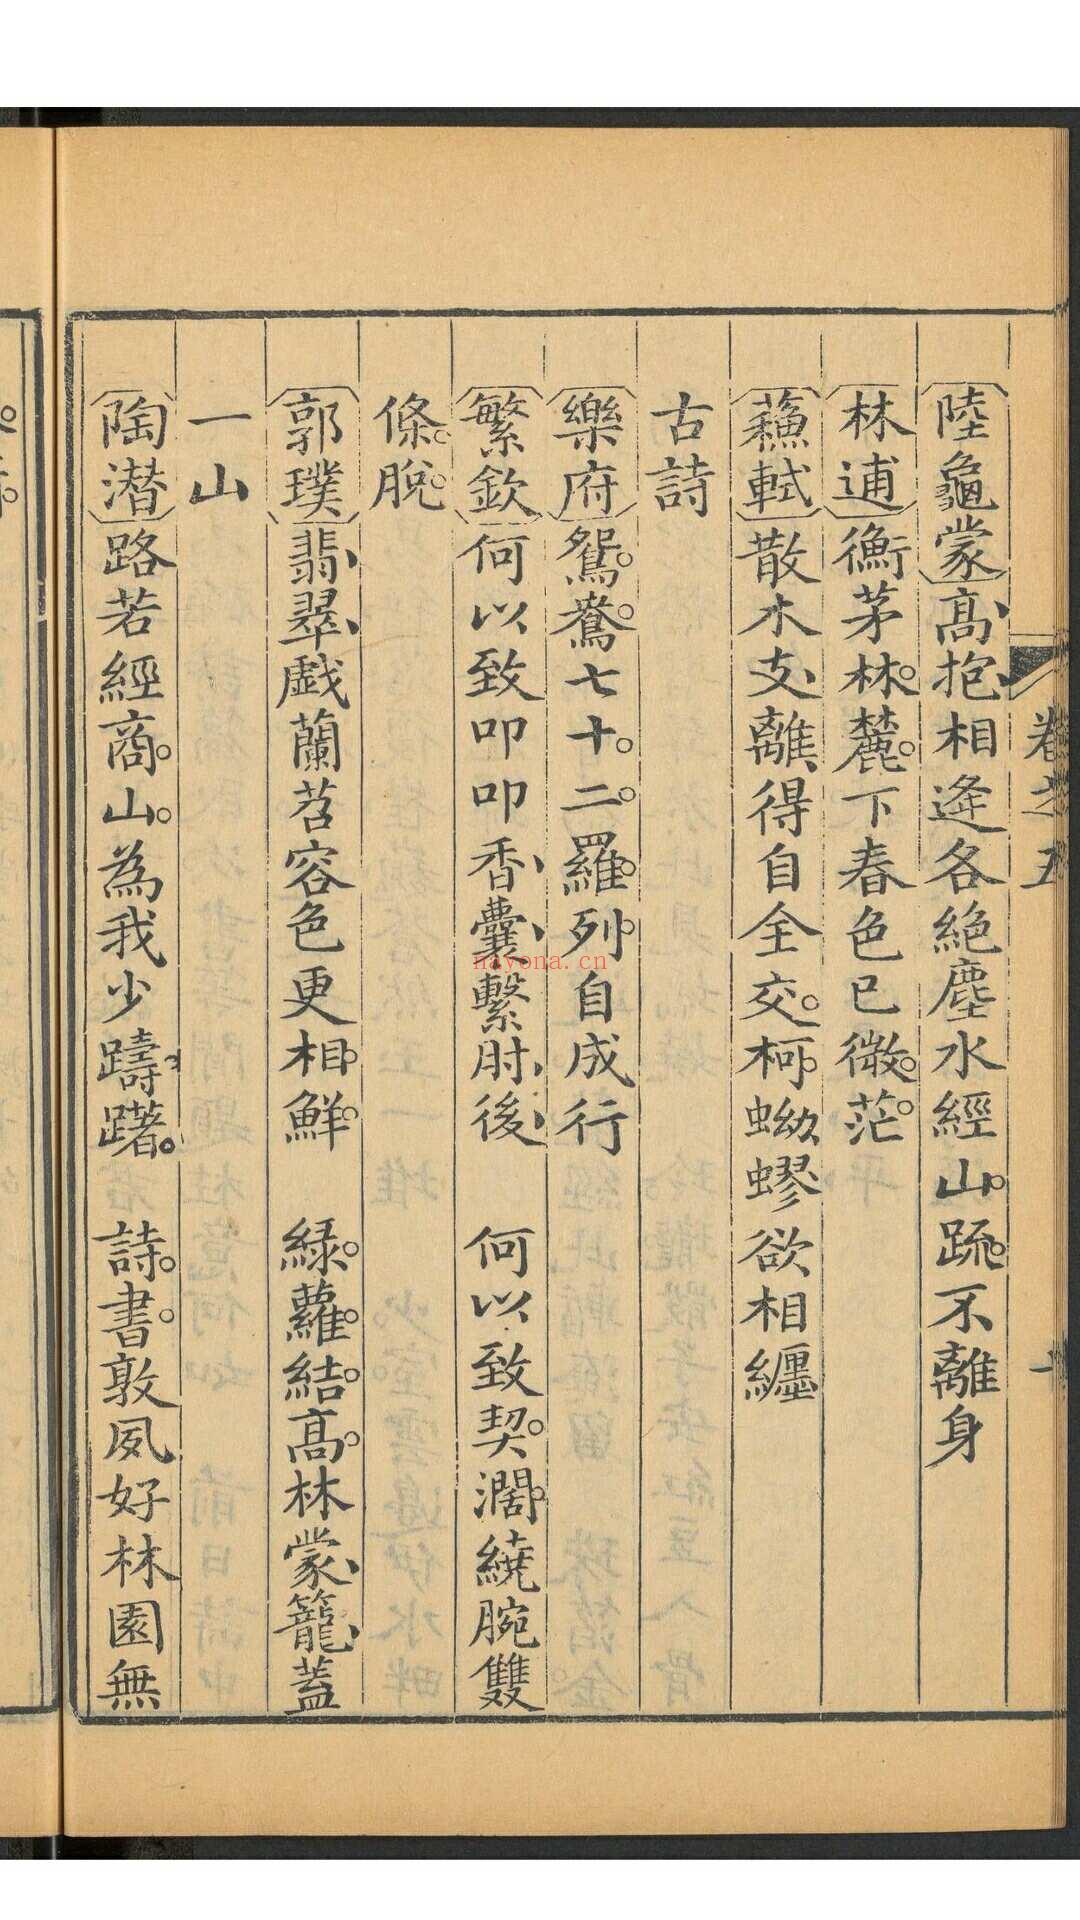 卷之五
陸龜蒙高抱相逢各絕塵水經山疏不離身
林逋衡茅林麓下春色已微茫
蘓軾散木支離得自全交柯蚴蟉欲相纏
古詩
樂府鴛鴦七十二羅列自成行
繁欽何以致叩叩香囊繫肘後 何以致契濶繞腕雙
條脫
郭璞翡翠戲蘭苕容色更相鮮 綠蘿結高林蒙籠蓋
一山
陶潛路若經商山為我少躊躇 詩書敦夙好林園無
nayona.cn